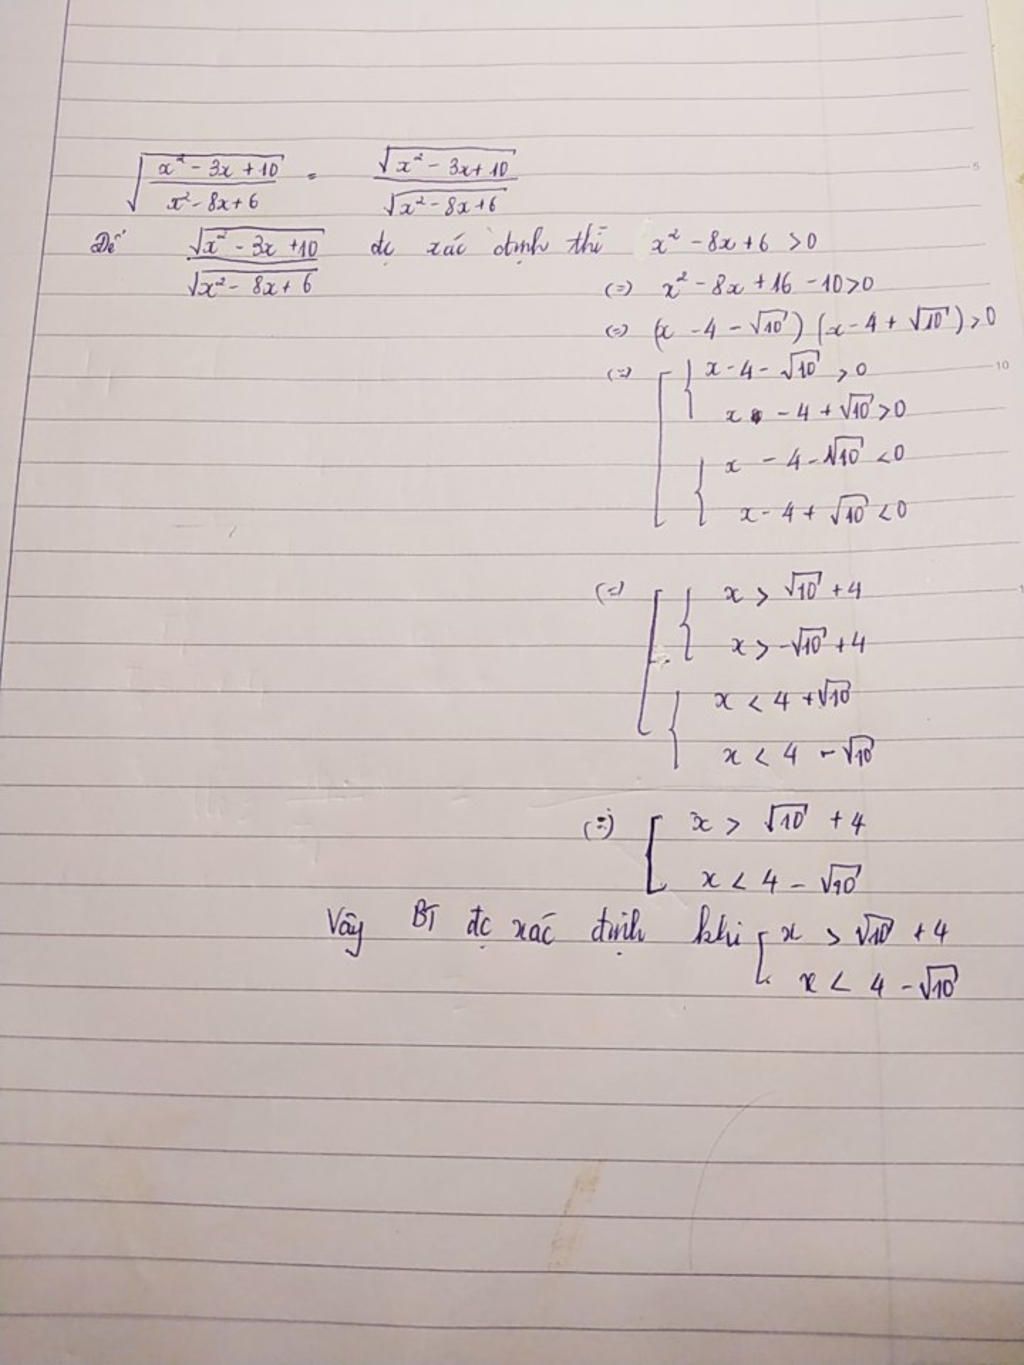 √((x² - 3x + 10)/(x² - 8x + 6)) = √(x² - 3x + 10)/√(x² - 8x + 6)
Để √(x² - 3x + 10)/√(x² - 8x + 6) đc xác định thì x² - 8x + 6 > 0
(=) x² - 8x + 16 - 10 > 0
(=) (x - 4 - √10)(x - 4 + √10) > 0
(=) [ { x - 4 - √10 > 0
x - 4 + √10 > 0
{ x - 4 - √10 < 0
x - 4 + √10 < 0
(=) [ { x > √10 + 4
x > -√10 + 4
{ x < 4 + √10
x < 4 - √10
(=) [ x > √10 + 4
x < 4 - √10
Vậy BT đc xác định khi [ x > √10 + 4
x < 4 - √10
5
10